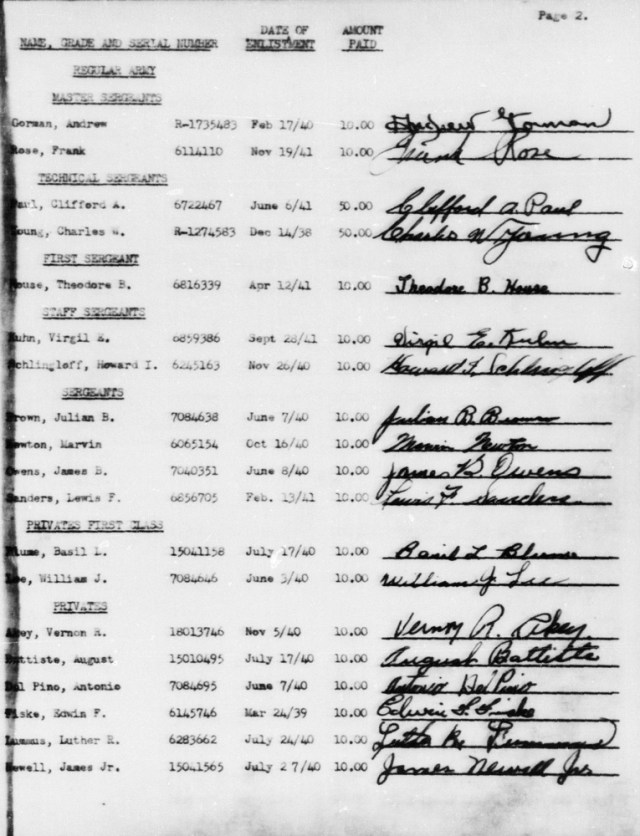 Page 2.
NAME, GRADE AND SERIAL NUMBER DATE OF ENLISTMENT AMOUNT PAID
REGULAR ARMY
MASTER SERGEANTS
Gorman, Andrew R-1735483 Feb 17/40 10.00 Andrew Gorman
Rose, Frank 6114110 Nov 19/41 10.00 Frank Rose
TECHNICAL SERGEANTS
Paul, Clifford A. 6722467 June 6/41 50.00 Clifford A Paul
Young, Charles W. R-1274583 Dec 14/38 50.00 Charles W Young
FIRST SERGEANT
House, Theodore B. 6816339 Apr 12/41 10.00 Theodore B. House
STAFF SERGEANTS
Kuhn, Virgil E. 6859386 Sept 28/41 10.00 Virgil E. Kuhn
Schlingloff, Howard I. 6245163 Nov 26/40 10.00 Howard I. Schlingloff
SERGEANTS
Brown, Julian B. 7084638 June 7/40 10.00 Julian B. Brown
Newton, Marvin 6065154 Oct 16/40 10.00 Marvin Newton
Owens, James B. 7040351 June 8/40 10.00 James B. Owens
Sanders, Lewis F. 6856705 Feb. 13/41 10.00 Lewis F. Sanders
PRIVATES FIRST CLASS
Blume, Basil L. 15041158 July 17/40 10.00 Basil L Blume
Lee, William J. 7084646 June 3/40 10.00 William J. Lee
PRIVATES
Akey, Vernon R. 18013746 Nov 5/40 10.00 R. Akey
Battiste, August 15010495 July 17/40 10.00 August Battiste
Del Pino, Antonio 7084695 June 7/40 10.00 Antonio Del Pino
Fiske, Edwin F. 6145746 Mar 24/39 10.00 Edwin F. Fiske
Luther R. 6283662 July 24/40 10.00 Luther R.
Newell, James Jr. 15041565 July 27/40 10.00 James Newell Jr